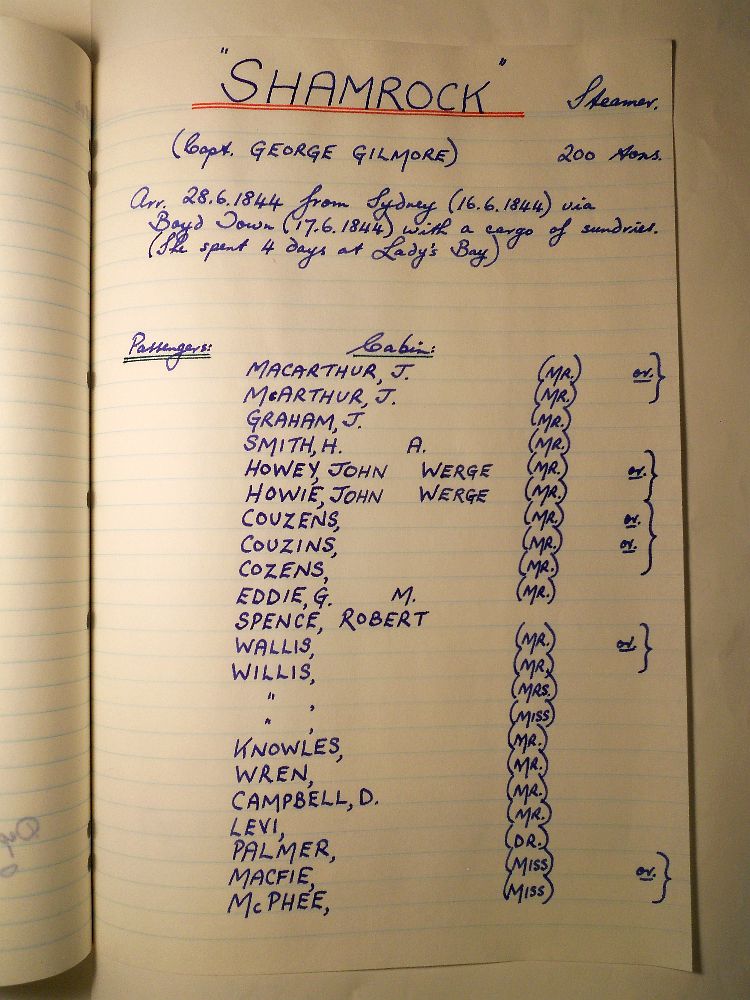 "SHAMROCK" Steamer.
(Capt. GEORGE GILMORE) 200 tons.
Arr. 28.6.1844 from Sydney (16.6.1844) via
Boyd Town (17.6.1844) with a cargo of sundries.
(She spent 4 days at Lady's Bay)
Passengers: Cabin:
MACARTHUR, J. (MR.) or. }
McARTHUR, J. (MR.)
GRAHAM, J. (MR.)
SMITH, H. A. (MR.)
HOWEY, JOHN WERGE (MR.) or. }
HOWIE, JOHN WERGE (MR.)
COUZENS, (MR.) or. }
COUZINS, (MR.) or.
COZENS, (MR.)
EDDIE, G. M. (MR.)
SPENCE, ROBERT
WALLIS, (MR.) or. }
WILLIS, (MR.)
" , (MRS.)
" , (MISS)
KNOWLES, (MR.)
WREN, (MR.)
CAMPBELL, D. (MR.)
LEVI, (MR.)
PALMER, (DR.)
MACFIE, (MISS) or. }
McPHEE, (MISS)